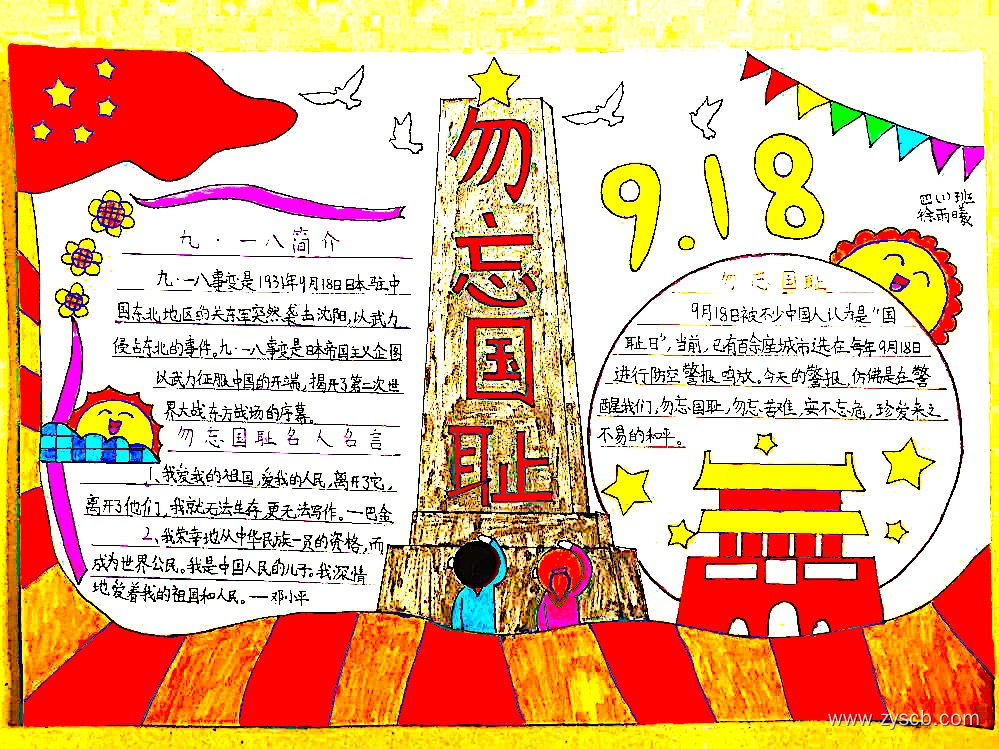 勿忘国耻
9.18
四(1)班
徐雨曦
九·一八简介
九·一八事变是1931年9月18日日本驻中
国东北地区的关东军突然袭击沈阳,以武力
侵占东北的事件。九·一八事变是日本帝国主义企图
以武力征服中国的开端,揭开了第二次世
界大战东方战场的序幕。
勿忘国耻名人名言
1、我爱我的祖国,爱我的人民,离开了它,
离开了他们,我就无法生存,更无法写作。—巴金
2、我荣幸地从中华民族一员的资格,而
成为世界公民。我是中国人民的儿子。我深情
地爱着我的祖国和人民。—邓小平
勿忘国耻
9月18日被不少中国人认为是“国
耻日”,当前,已有百余座城市选在每年9月18日
进行防空警报鸣放。今天的警报,仿佛是在警
醒我们,勿忘国耻,勿忘苦难,安不忘危,珍爱来之
不易的和平。
www.zyscb.com